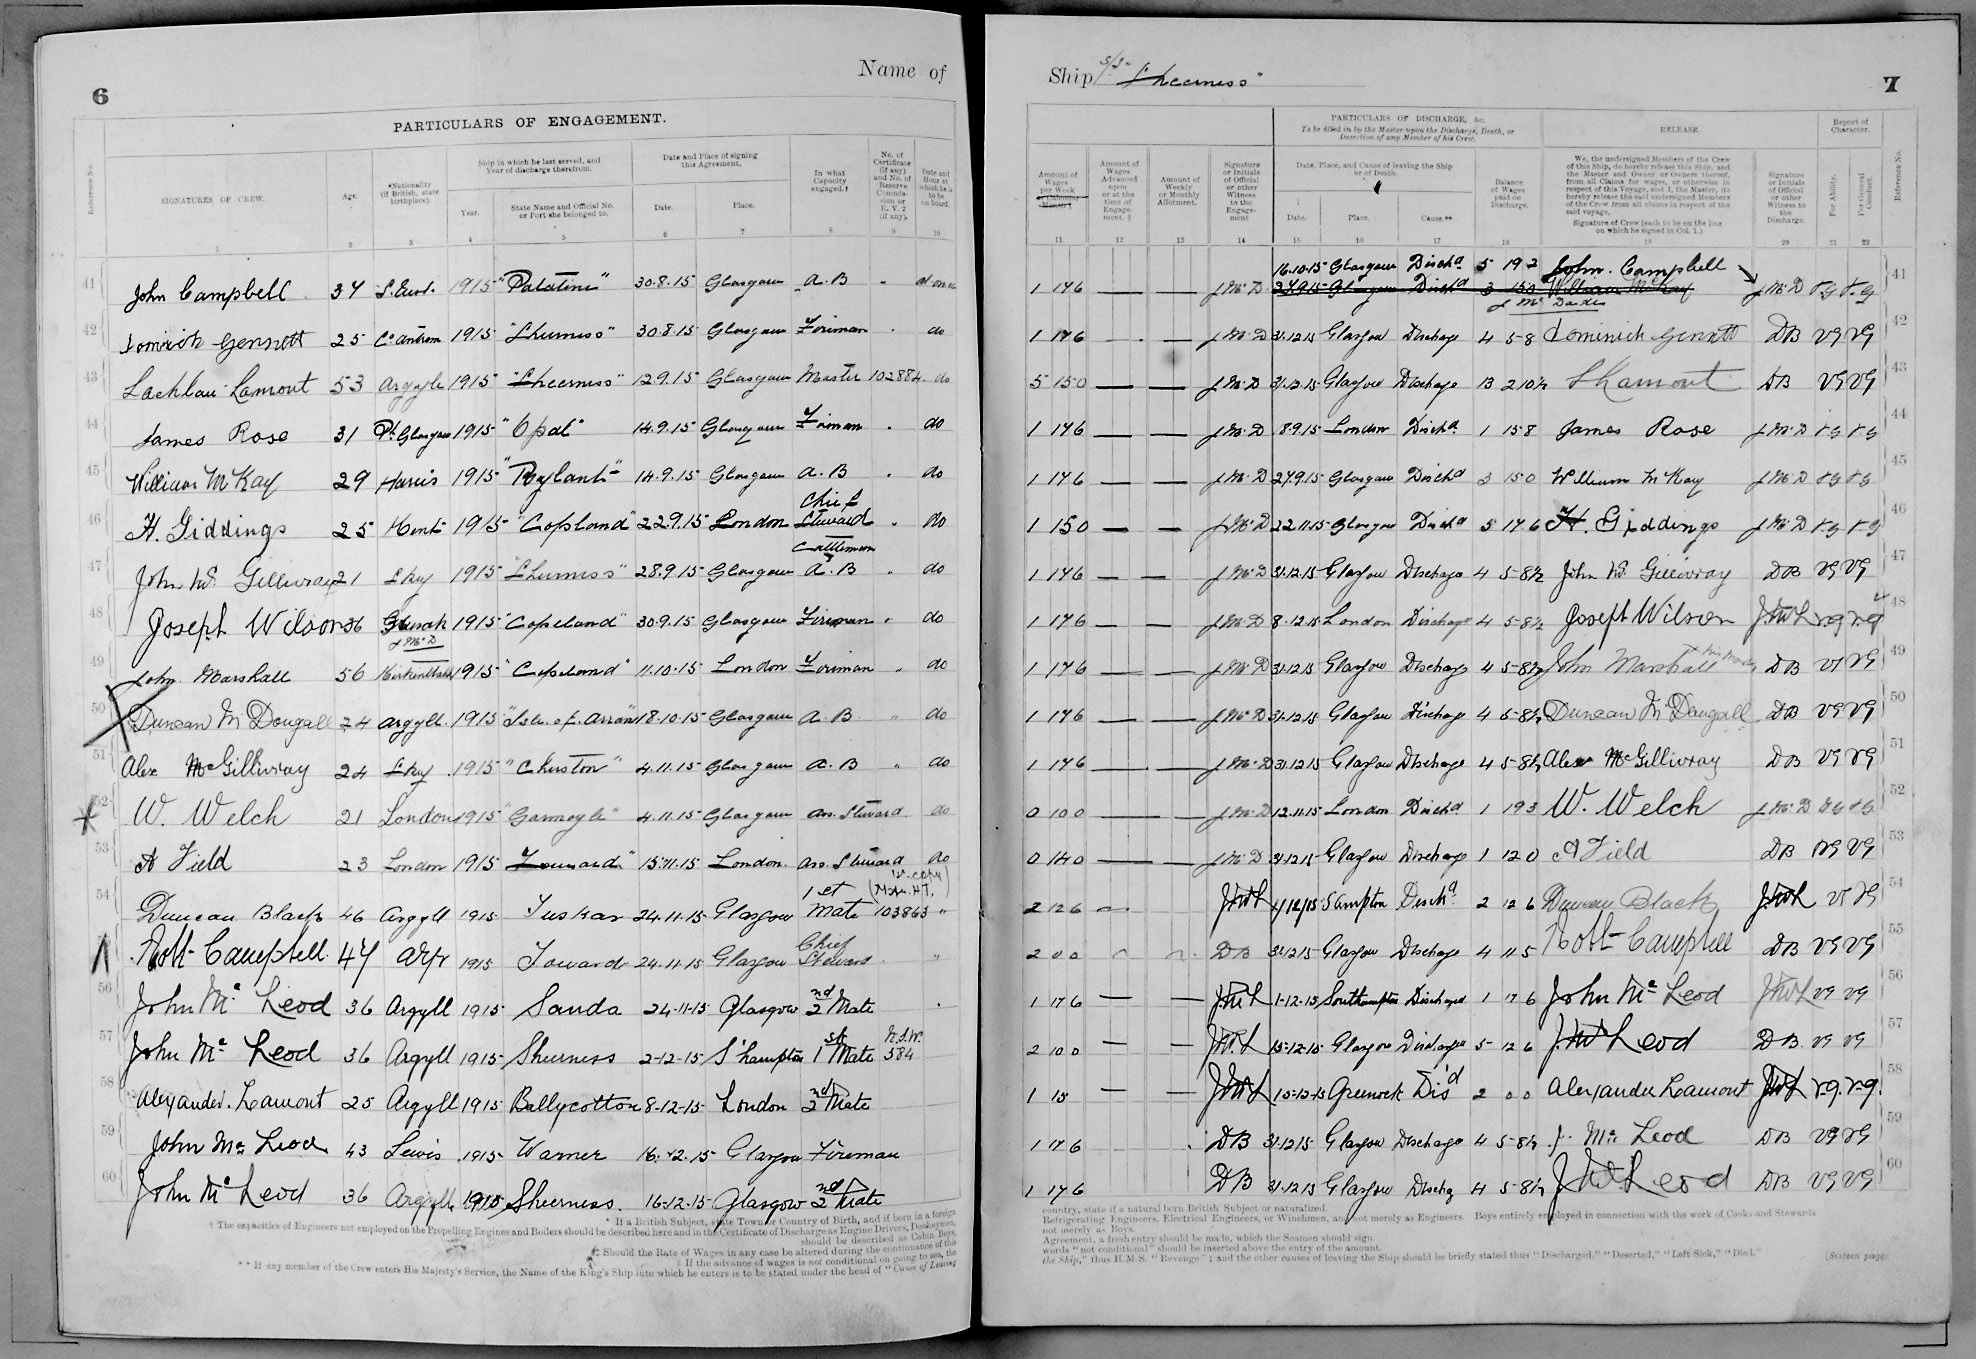 6
Name of
PARTICULARS OF ENGAGEMENT.
Reference No.
SIGNATURES OF CREW.
Age.
*Nationality (if British, state birthplace).
Ship in which he last served, and Year of discharge therefrom.
Year.
State Name and Official No. or Port she belonged to.
Date and Place of signing this Agreement.
Date.
Place.
In what Capacity engaged.†
No. of Certificate (if any) and No. of Reserve Commission or R. V. 2 (if any).
Date and Hour at which he is to be on board.
1 2 3 4 5 6 7 8 9 10
41 John Campbell 34 1915 "Palatine" 30.8.15 Glasgow A.B
42 Gennett 25 Co Antrim 1915 "Sheerness" 30.8.15 Glasgow Fireman do
43 Lachlan Lamont 53 Argyle 1915 "Sheerness" 12.9.15 Glasgow Master 102884 do
44 James Rose 31 Pt Glasgow 1915 "Opal" 14.9.15 Glasgow Fireman do
45 William McKay 29 Harris 1915 14.9.15 Glasgow A.B do
46 H. Giddings 25 Kent 1915 "Copeland" 22.9.15 London Chief Steward do
Cattleman
47 John McGillivray 21 Sky 1915 "Sheerness" 28.9.15 Glasgow A.B do
48 Joseph Wilson 36 1915 "Copeland" 30.9.15 Glasgow Fireman do
J McD
49 John Marshall 56 1915 "Copeland" 11.10.15 London Fireman do
50 Duncan McDougall 24 Argyll 1915 "Isle of Arran" 18.10.15 Glasgow A.B do
51 Alex McGillivray 24 Sky 1915 4.11.15 Glasgow A.B do
52 W. Welch 21 London 1915 "Garmoyle" 4.11.15 Glasgow ass. Steward do
53 A Field 23 London 1915 "Toward" 15.11.15 London ass. Steward do
54 Duncan Black 46 Argyll 1915 Tuskar 24.11.15 Glasgow 1st Mate 103863 "
55 Robt Campbell 47 Ayr 1915 Toward 24.11.15 Glasgow Chief Steward "
56 John McLeod 36 Argyll 1915 Sanda 24-11-15 Glasgow 2nd Mate
57 John McLeod 36 Argyll 1915 Sheerness 2-12-15 S'hampton 1st Mate N.S.W. 584
58 Alexander Lamont 25 Argyll 1915 Ballycotton 8-12-15 London 2nd Mate
59 John McLeod 43 Lewis 1915 Warner 16.12.15 Glasgow Fireman
60 John McLeod 36 Argyll 1915 Sheerness. 16-12-15 Glasgow 2nd Mate
* If a British Subject, state Town or Country of Birth, and if born in a foreign
† The capacities of Engineers not employed on the Propelling Engines and Boilers should be described here and in the Certificate of Discharge as Engine Drivers, Donkeymen,
should be described as Cabin Boys,
‡ Should the Rate of Wages in any case be altered during the continuance of this
§ If the advance of wages is not conditional on going to sea, the
** If any member of the Crew enters His Majesty's Service, the Name of the King's Ship into which he enters is to be stated under the head of "Cause of Leaving
Ship S/S "Sheerness"
7
PARTICULARS OF DISCHARGE, &c.
To be filled in by the Master upon the Discharge, Death, or Desertion of any Member of his Crew.
RELEASE.
Report of Character.
Amount of Wages per Week
Amount of Wages Advanced upon or at the time of Engagement. §
Amount of Weekly or Monthly Allotment.
Signature or Initials of Official or other Witness to the Engagement
Date, Place, and Cause of leaving the Ship or of Death.
Date.
Place.
Cause.**
Balance of Wages paid on Discharge.
We, the undersigned Members of the Crew of this Ship, do hereby release this Ship, and the Master and Owner or Owners thereof, from all Claims for wages, or otherwise in respect of this Voyage, and I, the Master, do hereby release the said undersigned Members of the Crew from all claims in respect of the said voyage.
Signature of Crew (each to be on the line on which he signed in Col. 1.)
Signature or Initials of Official or other Witness to the Discharge.
For Ability.
For General Conduct.
Reference No.
11 12 13 14 15 16 17 18 19 20 21 22
16.10.15 Glasgow Dischd 5 19 2 John. Campbell
1 17 6 J McD 27.9.15 Glasgow Dischd 3 15 0 William McKay J McD VG VG 41
J McDade
1 17 6 J McD 31.12.15 Glasgow Discharge 4 5-8 Dominick Gennett DB VG VG 42
5 15 0 J McD 31.12.15 Glasgow Discharge 13 2 10½ L Lamont DB VG VG 43
1 17 6 J McD London Dischd 1 15 8 James Rose J McD VG VG 44
1 17 6 J McD 27.9.15 Glasgow Dischd 3 15 0 William McKay J McD VG VG 45
1 15 0 J McD 22.11.15 Glasgow Dischd 5 17 6 H. Giddings J McD VG VG 46
1 17 6 J McD 31.12.15 Glasgow Discharge 4 5-8½ John McGillivray DB VG VG 47
1 17 6 J McD 8.12.15 London Discharge 4 5-8½ Joseph Wilson JMcL VG VG 48
1 17 6 J McD 31.12.15 Glasgow Discharge 4 5-8½ John Marshall DB VG VG 49
1 17 6 J McD 31.12.15 Glasgow Discharge 4 5-8½ Duncan McDougall DB VG VG 50
1 17 6 J McD 31.12.15 Glasgow Discharge 4 5-8½ Alex McGillivray DB VG VG 51
0 10 0 J McD 12.11.15 London Dischd 1 19 3 W. Welch J McD VG VG 52
0 14 0 J McD 31.12.15 Glasgow Discharge 1 12 0 A Field DB VG VG 53
2 12 6 JMcL 1/12/15 S'hampton Dischd 2 12 6 Duncan Black JMcL VG VG 54
2 0 0 DB 31.12.15 Glasgow Discharge 4 11 5 Robt Campbell DB VG VG 55
1 17 6 JMcL 1-12-15 Southampton Discharged 1 17 6 John McLeod JMcL VG VG 56
2 10 0 JMcL 15-12-15 Glasgow Discharge 5 12 6 J. McLeod DB VG VG 57
1 15 JMcL 15-12-15 Greenock Dis'd 2 0 0 Alexander Lamont JMcL V.G. V.G. 58
1 17 6 DB 31.12.15 Glasgow Discharge 4 5-8½ J. McLeod DB VG VG 59
1 17 6 DB 31.12.15 Glasgow Dischg 4 5-8½ J. McLeod DB VG VG 60
country, state if a natural born British Subject or naturalized.
Refrigerating Engineers, Electrical Engineers, or Winchmen, and not merely as Engineers. Boys entirely employed in connection with the work of Cooks and Stewards
not merely as Boys.
Agreement, a fresh entry should be made, which the Seamen should sign.
words "not conditional" should be inserted above the entry of the amount.
the Ship," thus H.M.S. "Revenge"; and the other causes of leaving the Ship should be briefly stated thus "Discharged," "Deserted," "Left Sick," "Died."
[Sixteen pages